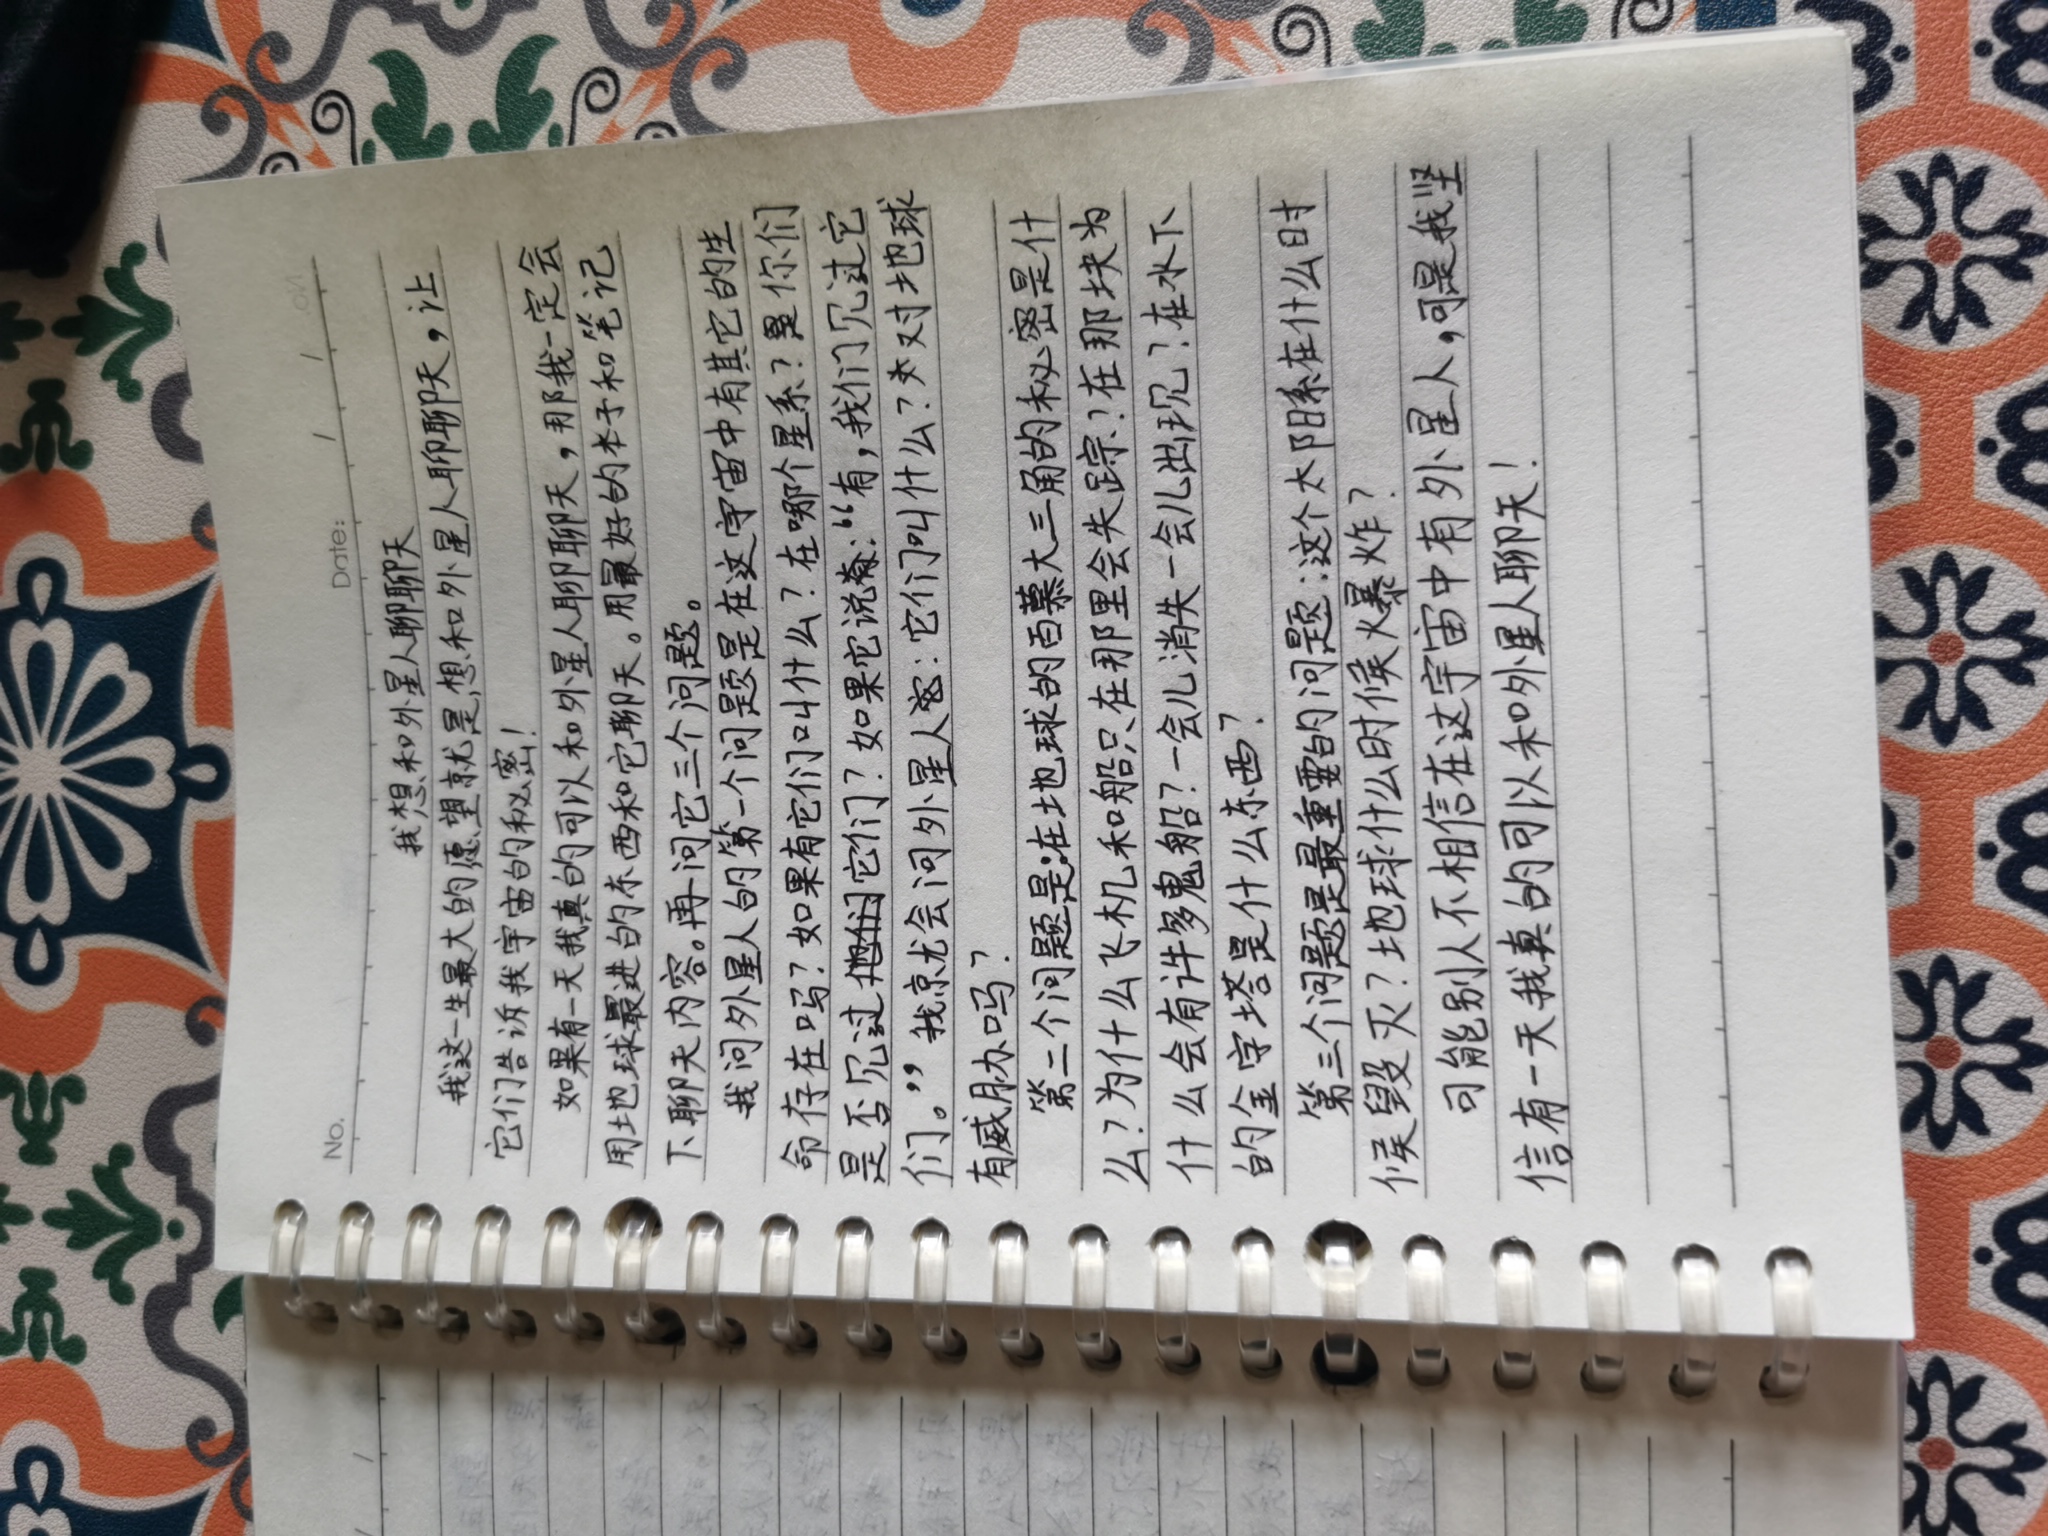 No.
Date: / /
我想和外星人聊聊天
我这一生最大的愿望就是想和外星人聊聊天，让
它们告诉我宇宙的秘密！
如果有一天我真的可以和外星人聊聊天，那我一定会
用地球最进的东西和它聊天。用最好的本子和笔记
下聊天内容。再问它三个问题。
我问外星人的第一个问题是在这宇宙中有其它的生
命存在吗？如果有它们叫什么？在哪个星系？是你们
是否见过它们？如果它说：“有，我们见过它
们。”我就会问外星人：它们叫什么？对地球
有威胁吗？
第二个问题是：在地球的百慕大三角的秘密是什
么？为什么飞机和船只在那里会失踪？在那块为
什么会有许多鬼船？一会儿消失一会儿出现？在水下
的金字塔是什么东西？
第三个问题是最重要的问题：这个太阳系在什么时
候毁灭？地球什么时候火暴炸？
可能别人不相信在这宇宙中有外星人，可是我坚
信有一天我真的可以和外星人聊天！